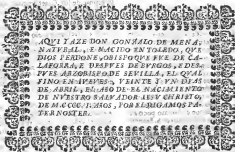 AQUI YAZE DON GONZALO DE MENA,
NATURAL, E NACIO EN TOLEDO, QUE
DIOS PERDONE, OBISPO QUE FUE DE CA-
LAFORRA, E DESPUES DE BURGOS, E DES-
PUES ARZOBISPO DE SEVILLA, EL QUAL
FINO EN JUEVES, VEINTE Y UN DIAS
DE ABRIL, EL AÑO DEL NACIMIENTO
DE NUESTRO SALVADOR JESU CHRISTO,
DE M.CCCC.I. AÑOS, POR EL DIGAMOS PA-
TER NOSTER.